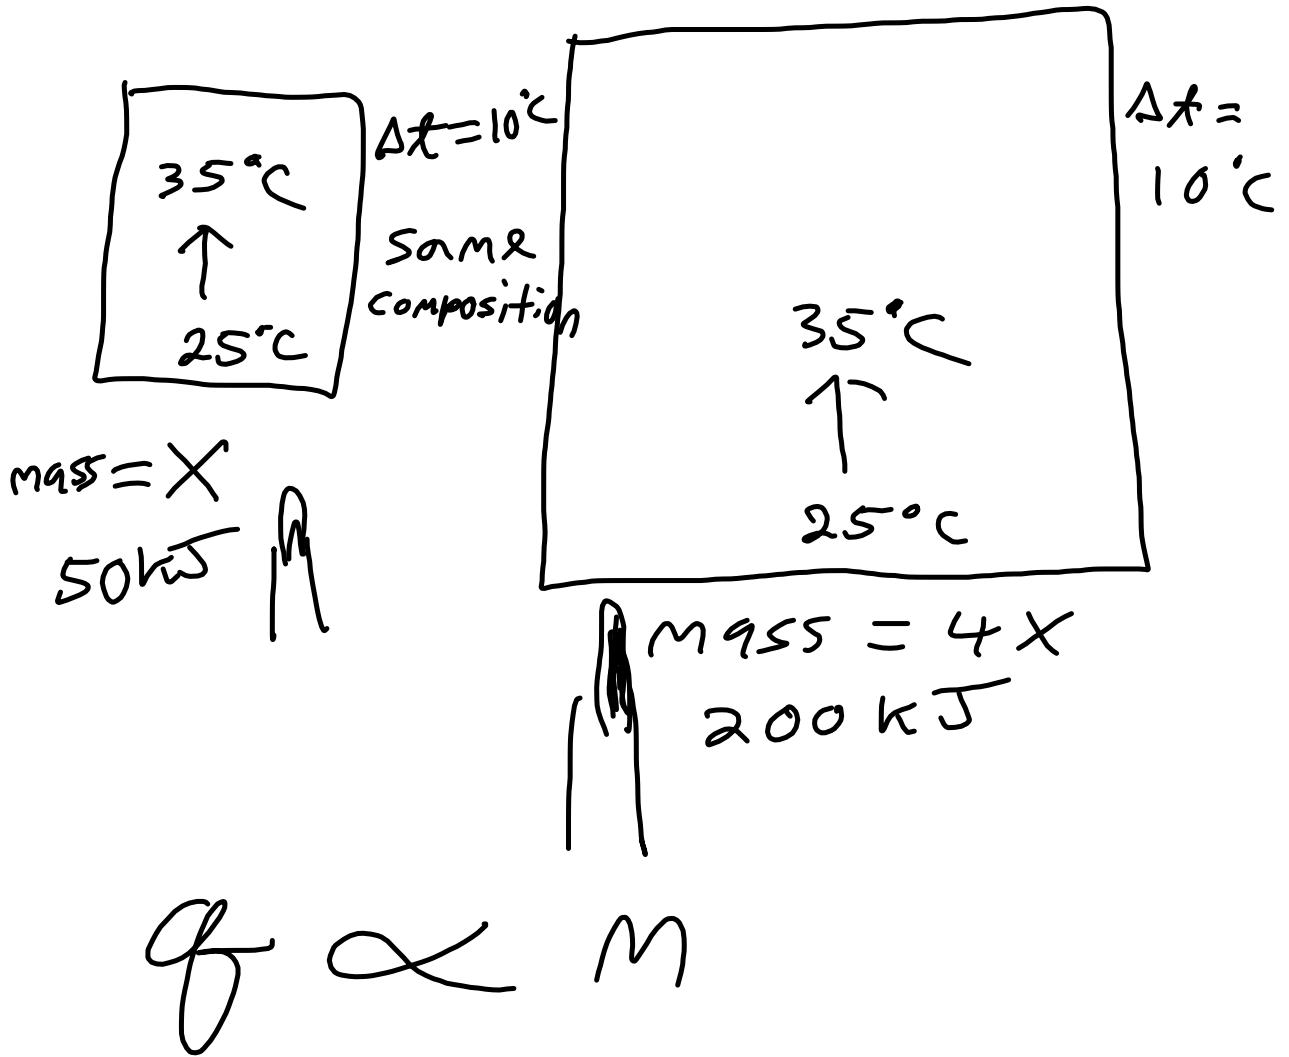 35°C
25°C
Δt=10°C
same
composition
mass=X
50kJ
35°C
25°C
Δt=
10°C
mass=4X
200kJ
q ∝ m